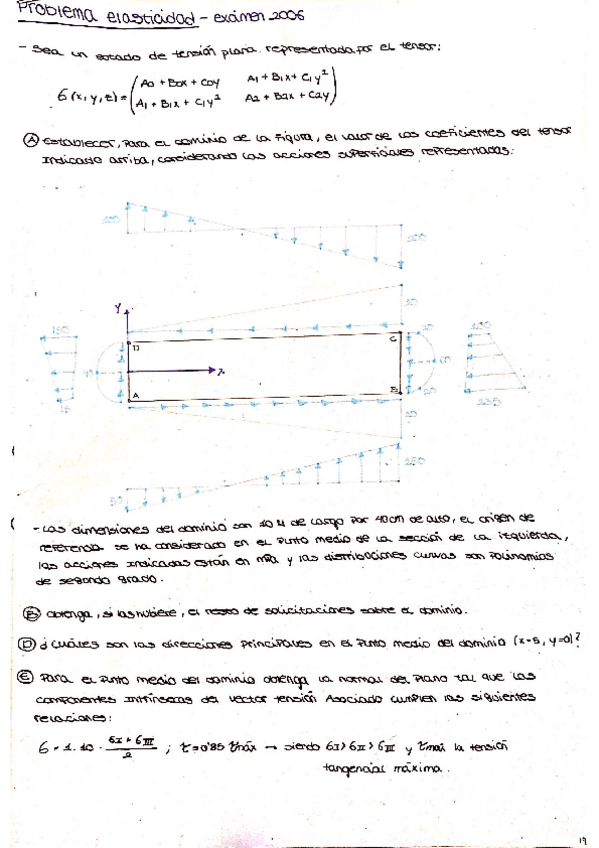 Problema elasticidad - exámen 2006
- Sea un estado de tensión plana representada por el tensor:
σ(x,y,z) = (A0 + B0x + C0y   A1 + B1x + C1y²
A1 + B1x + C1y²   A2 + B2x + C2y)
Ⓐ Establecer, para el dominio de la figura, el valor de los coeficientes del tensor
indicado arriba, considerando las acciones superficiales representadas:
200
200
Y
150
D
C
x
A
B
20
20
235
250
50
- Las dimensiones del dominio son 10 M de largo por 40cm de alto, el origen de
referencia se ha considerado en el punto medio de la sección de la izquierda,
las acciones indicadas están en MPa y las distribuciones curvas son polinomios
de segundo grado.
Ⓑ obtenga, si las hubiere, el resto de solicitaciones sobre el dominio.
Ⓓ ¿Cuáles son las direcciones principales en el punto medio del dominio (x=5, y=0)?
Ⓔ Para el punto medio del dominio obtenga la normal del plano tal que las
componentes intrínsecas del vector tensión Asociado cumplen las siguientes
relaciones:
σ = 1.10 · (σI + σIII)/2 ; τ = 0'85 τmáx → siendo σI > σII > σIII y τmax la tensión
tangencial máxima.
19